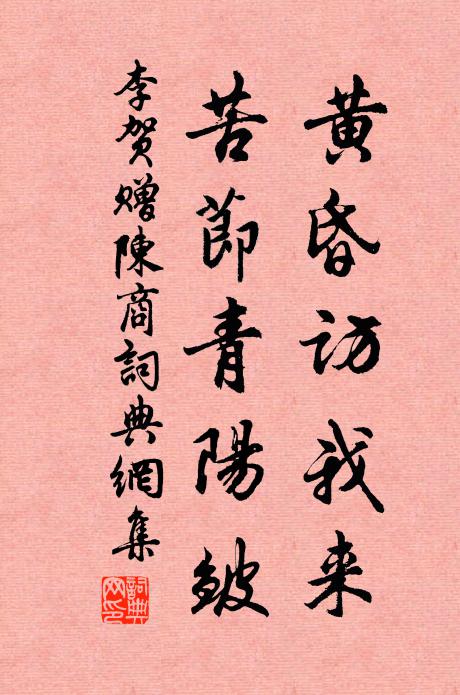 黄昏訪我来
苦節青陽皺
李贺赠陳商詞典網集
詞典网印